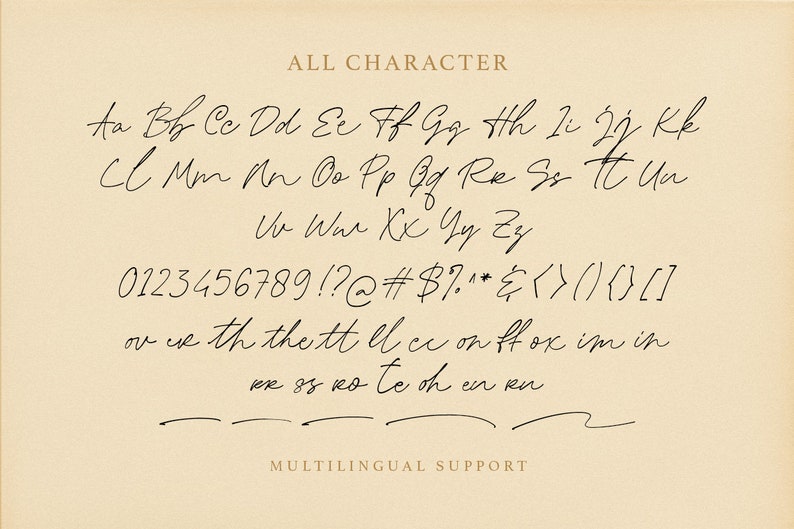 ALL CHARACTER
Aa Bb Cc Dd Ee Ff Gg Hh Ii Jj Kk
Ll Mm Nn Oo Pp Qq Rr Ss Tt Uu
Vv Ww Xx Yy Zz
0123456789!?@#$%^*&<>(){}[]
ov er th the tt ll cc on ff ox im in
rr ss ro te oh en rn
MULTILINGUAL SUPPORT